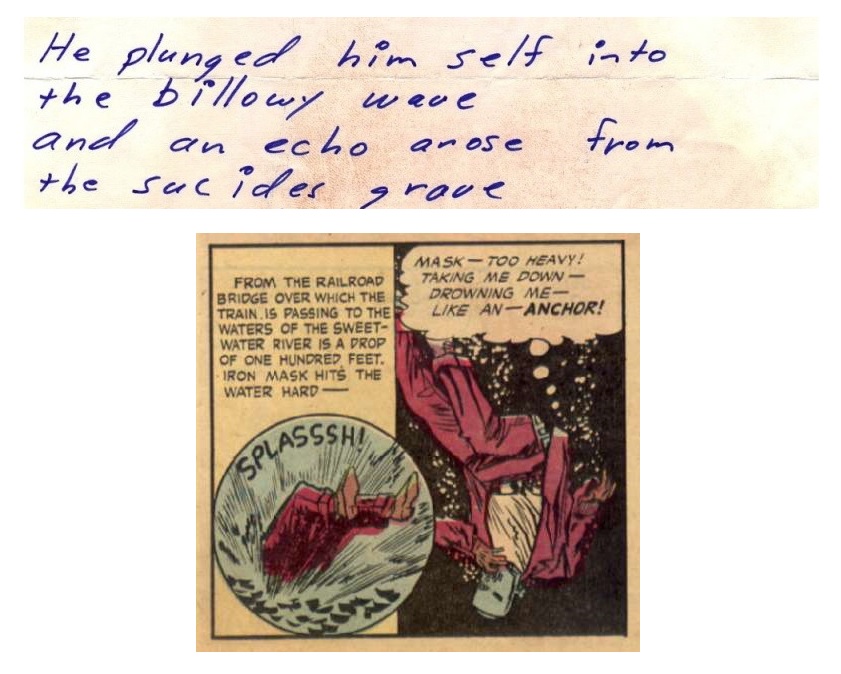 He plunged him self into
the billowy wave
and an echo arose from
the sucides grave
FROM THE RAILROAD
BRIDGE OVER WHICH THE
TRAIN IS PASSING TO THE
WATERS OF THE SWEET-
WATER RIVER IS A DROP
OF ONE HUNDRED FEET.
IRON MASK HITS THE
WATER HARD —
SPLASSSH!
MASK — TOO HEAVY!
TAKING ME DOWN —
DROWNING ME —
LIKE AN — ANCHOR!